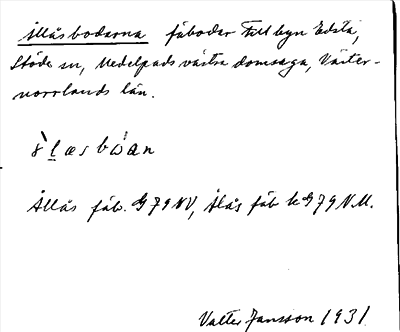 Ållåsbodarna fäbodar till byn Edsta,
Stöde sn, Medelpads västra domsaga, Väster-
norrlands län.
Ållås fäb. G 79 NV, Ålås fäb k G 79 N.M.
Valter Jansson 1931.